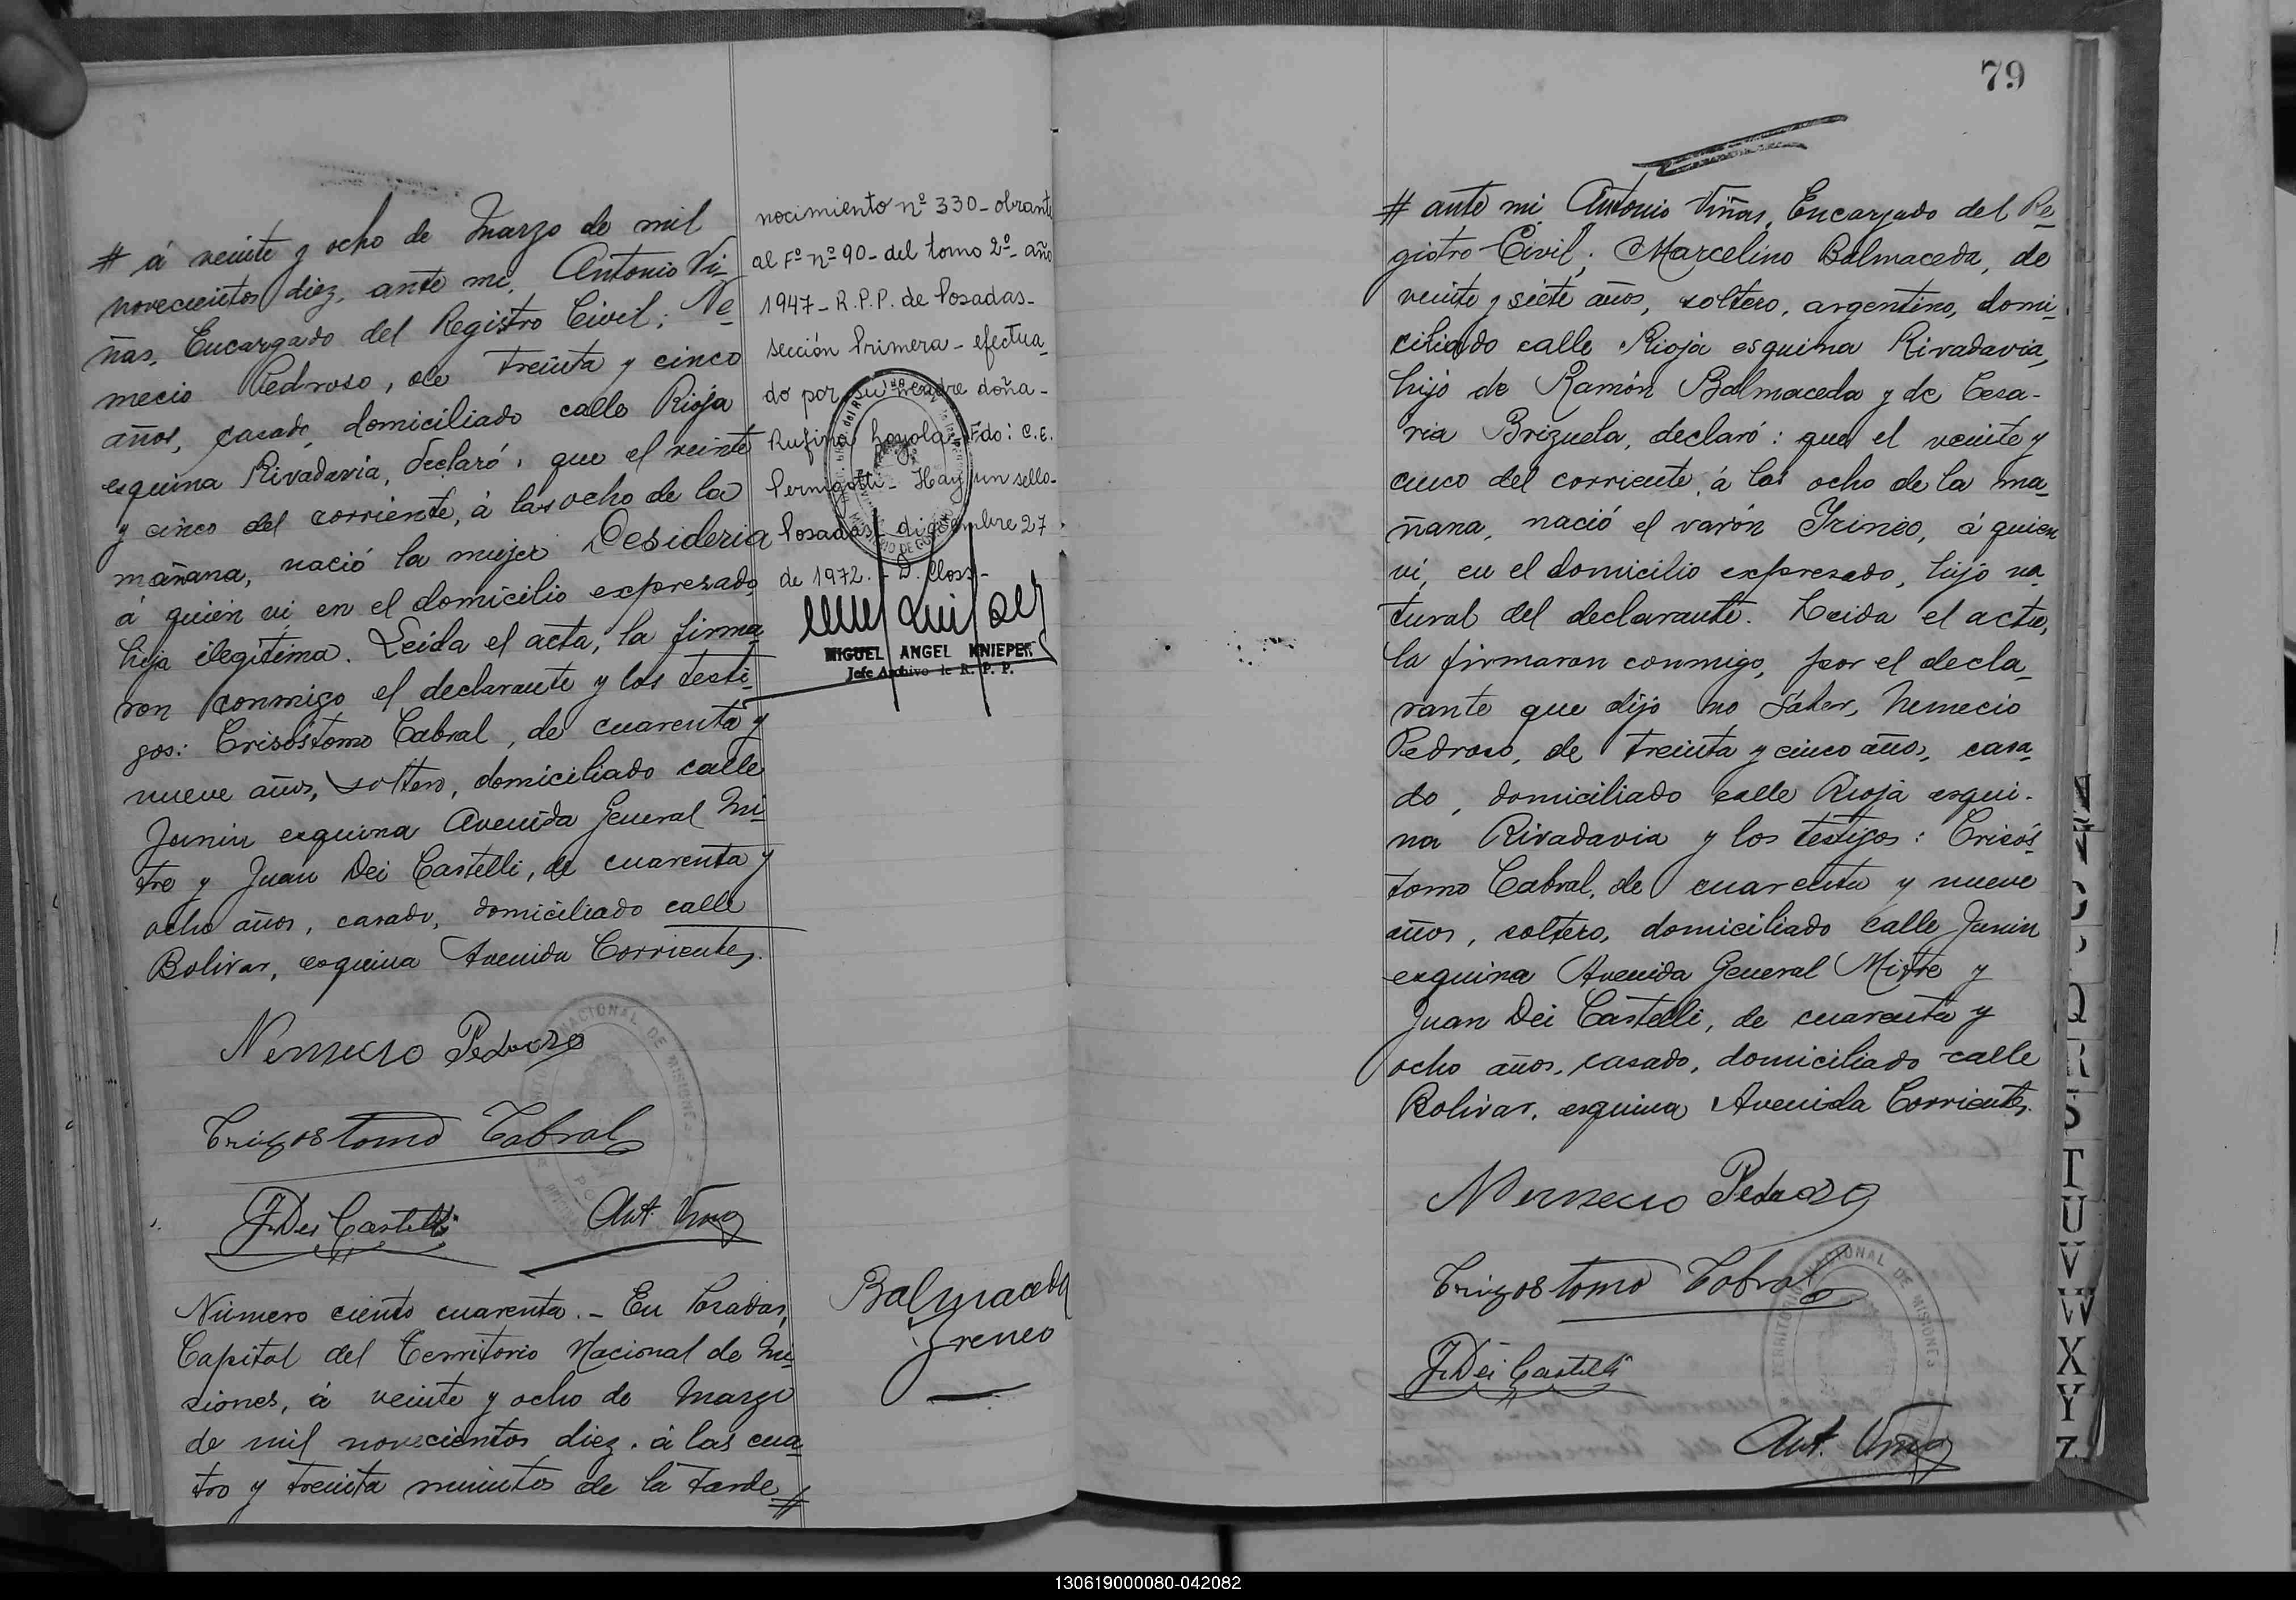 # á veinte y ocho de Marzo de mil
novecientos diez, ante mi, Antonio Vi-
ñas, Encargado del Registro Civil; Ne-
mecio Pedroso, de treinta y cinco
años, casado, domiciliado calle Rioja
esquina Rivadavia, declaró: que el veinte
y cinco del corriente, á las ocho de la
mañana, nació la mujer Desideria
á quien vi en el domicilio expresado,
hija ilegítima. Leida el acta, la firma-
ron conmigo el declarante y los testi-
gos: Crisóstomo Cabral, de cuarenta y
nueve años, soltero, domiciliado calle
Junin esquina Avenida General Mi-
tre y Juan Dei Castelli, de cuarenta y
ocho años, casado, domiciliado calle
Bolivar, esquina Avenida Corrientes.
Nemecio Pedrozo
Crizostomo Cabral
J. Dei Castelli
Ant. Viñas
nocimiento nº 330 - obrante
al Fº nº 90 - del tomo 2º - año
1947 - R.P.P. de Posadas -
sección Primera - efectua-
do por su madre doña -
Rufina Loyola. Fdo: C.E.
Pernigotti - Hay un sello -
Posadas, diciembre 27
de 1972. - D. Closs -
MIGUEL ANGEL KNIEPER
Jefe Archivo de R. P. P.
Número ciento cuarenta. - En Posadas,
Capital del Territorio Nacional de Mi-
siones, á veinte y ocho de Marzo
de mil novecientos diez, á las cua-
tro y treinta minutos de la tarde #
Balmaceda
Ireneo
79
# ante mi, Antonio Viñas, Encargado del Re-
gistro Civil; Marcelino Balmaceda, de
veinte y siete años, soltero, argentino, domi-
ciliado calle Rioja esquina Rivadavia,
hijo de Ramón Balmaceda y de Cesa-
ria Brizuela, declaró: que el veinte y
cinco del corriente, á las ocho de la ma-
ñana, nació el varón Irineo, á quien
vi, en el domicilio expresado, hijo na-
tural del declarante. Leida el acta,
la firmaron conmigo, por el decla-
rante que dijo no saber, Nemecio
Pedroso, de treinta y cinco años, casa-
do, domiciliado calle Rioja esqui-
na Rivadavia y los testigos: Crisós-
tomo Cabral, de cuarenta y nueve
años, soltero, domiciliado calle Junin
esquina Avenida General Mitre y
Juan Dei Castelli, de cuarenta y
ocho años, casado, domiciliado calle
Bolivar, esquina Avenida Corrientes.
Nemecio Pedrozo
Crizostomo Cabral
J. Dei Castelli
TERRITORIO NACIONAL DE MISIONES
Ant. Viñas
Q
R
S
T
U
V
W
X
Y
Z
130619000080-042082